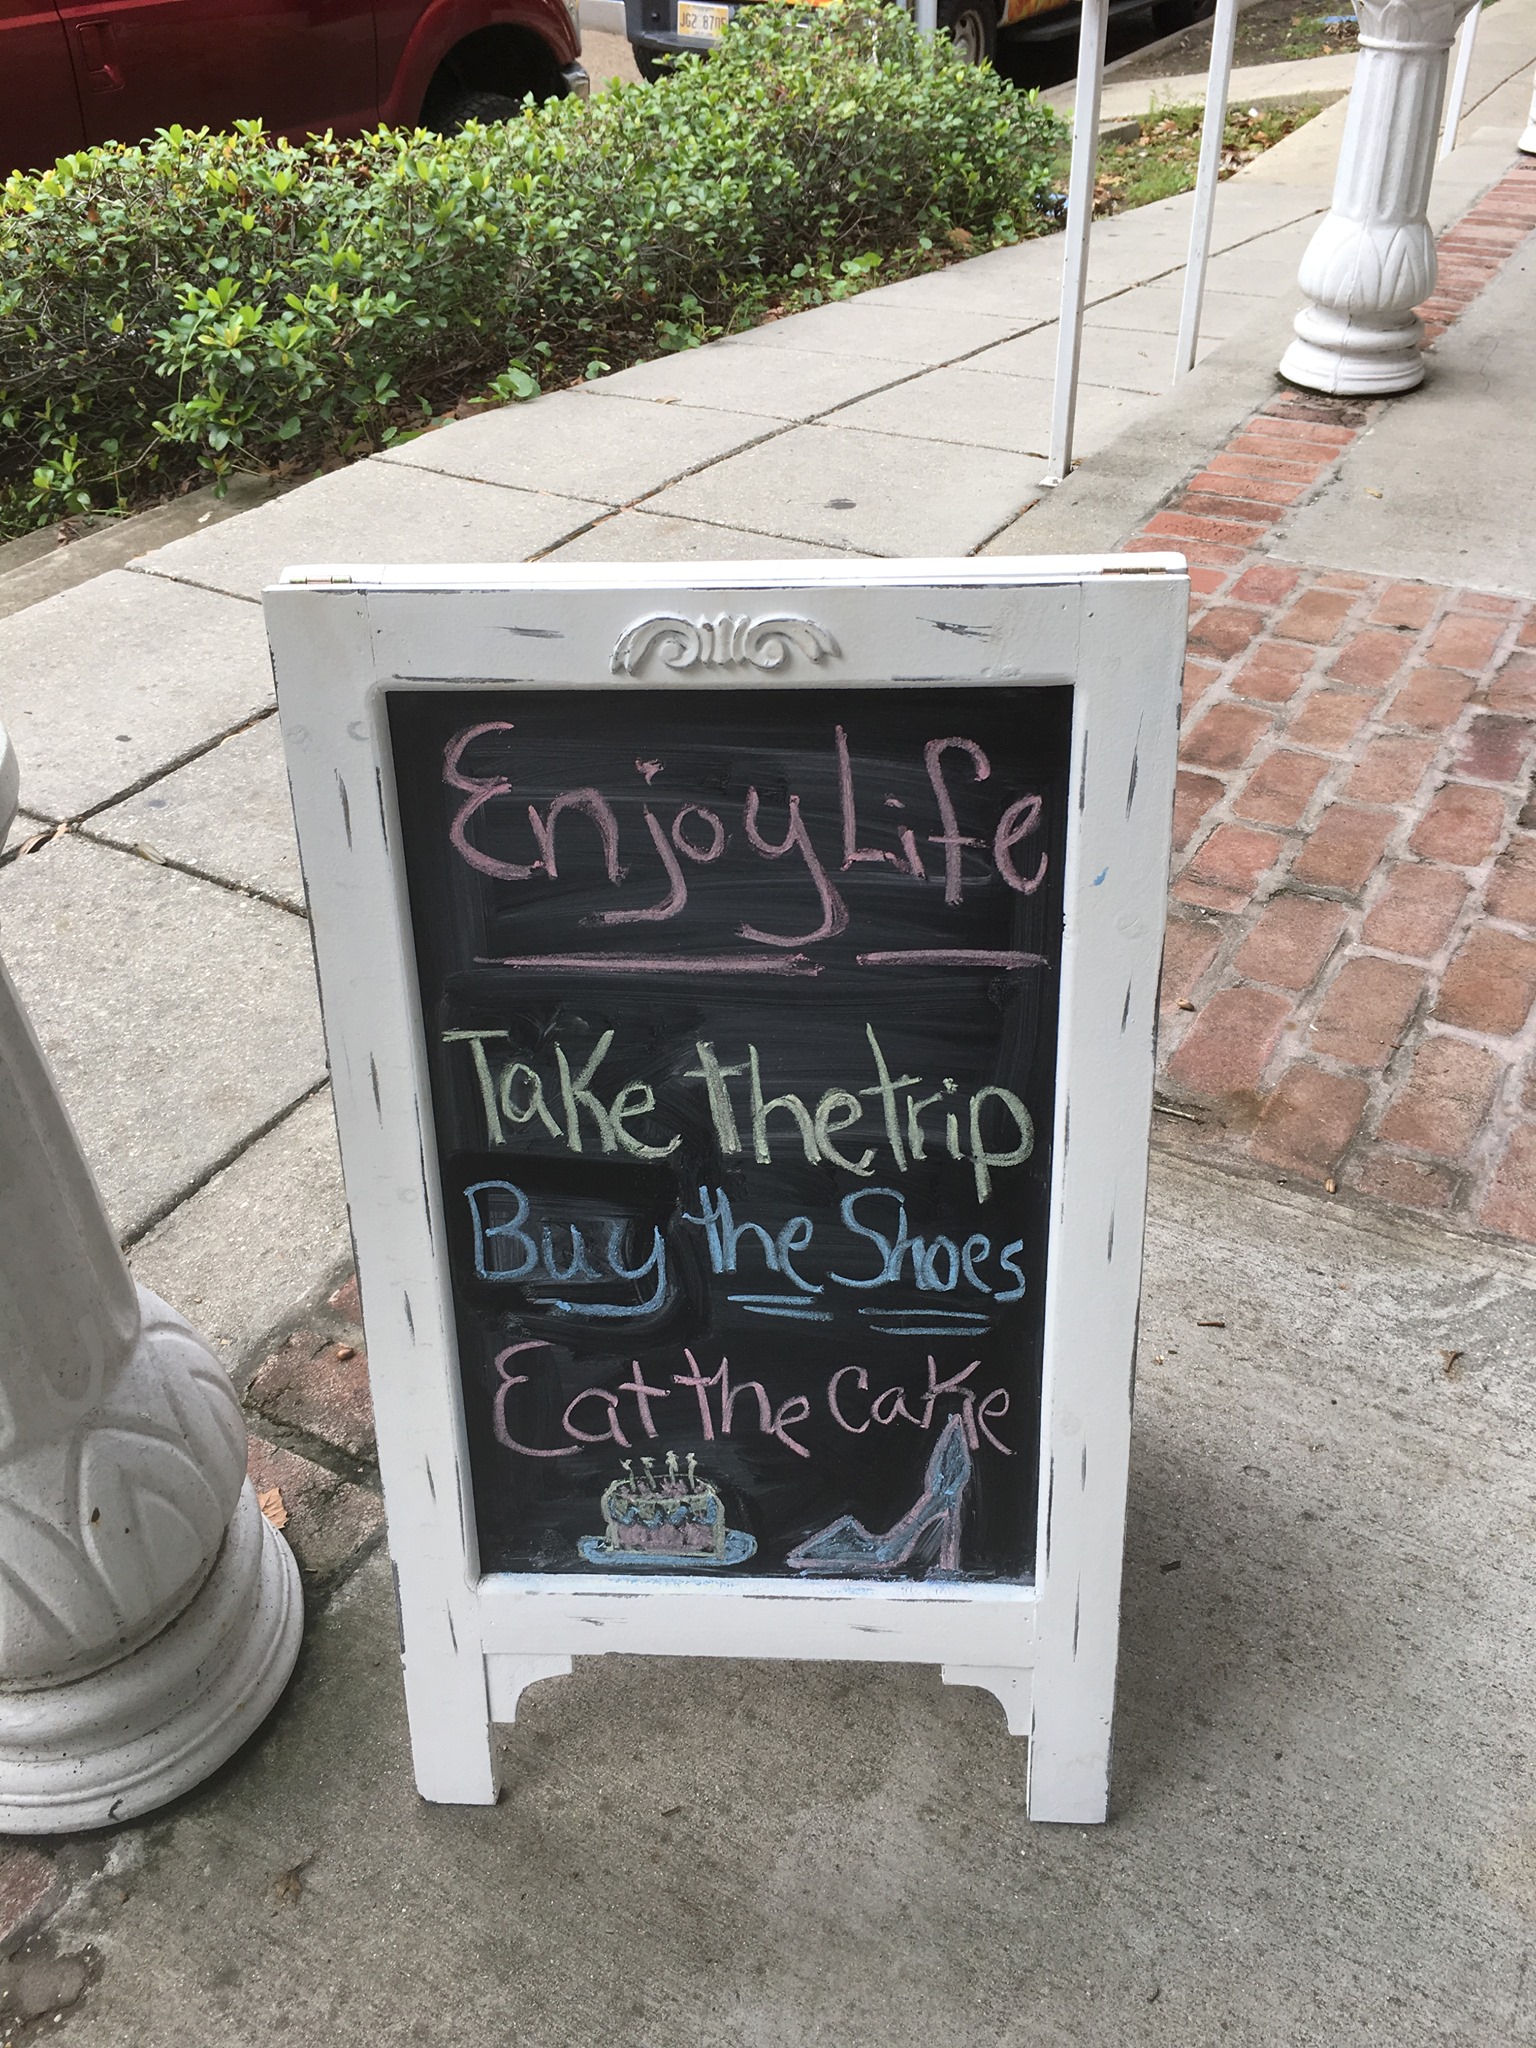 JGZ 8705
Enjoy Life
Take the trip
Buy the Shoes
Eat the Cake